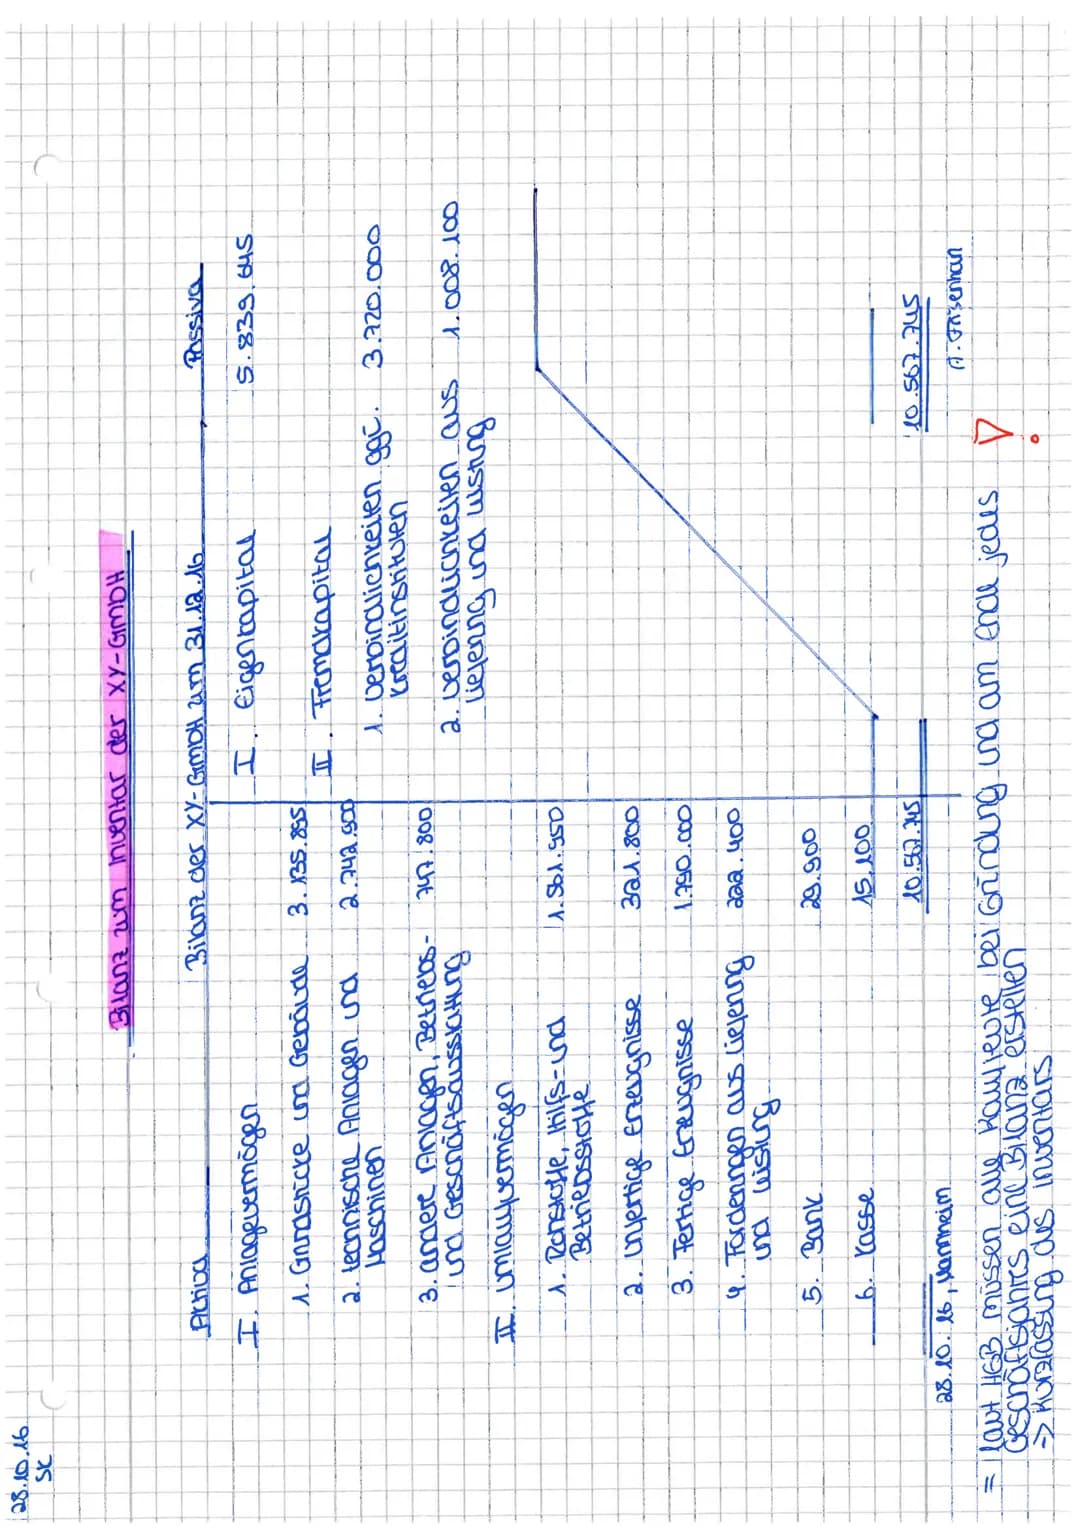 28.10.16
SK
Bilanz zum Inventar der XY-GmbH
Aktiva Bilanz der XY-GmbH zum 31.12.16 Passiva
I. Anlagevermögen
1. Grundstücke und Gebäude 3.135.895
2. technische Anlagen und 2.742.900
Maschinen
3. andere Anlagen, Betriebs- 747.800
und Geschäftsausstattung
II. Umlaufvermögen
1. Rohstoffe, Hilfs- und 1.561.950
Betriebsstoffe
2. Unfertige Erzeugnisse 321.800
3. Fertige Erzeugnisse 1.790.000
4. Forderungen aus Lieferung 222.400
und Leistung
5. Bank 29.900
6. Kasse 15.100
10.567.745
I. Eigenkapital 5.839.645
II. Fremdkapital
1. Verbindlichkeiten ggü. 3.720.000
Kreditinstituten
2. Verbindlichkeiten aus 1.008.100
Lieferung und Leistung
10.567.745
28.10.16, Mannheim
= laut HGB müssen alle Kaufleute bei Gründung und am Ende jedes
Geschäftsjahres eine Bilanz erstellen
=> Kurzfassung des Inventars